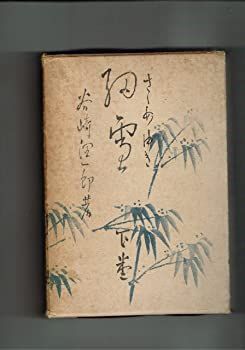 さゝめゆき
細雪
下巻
谷崎潤一郎著